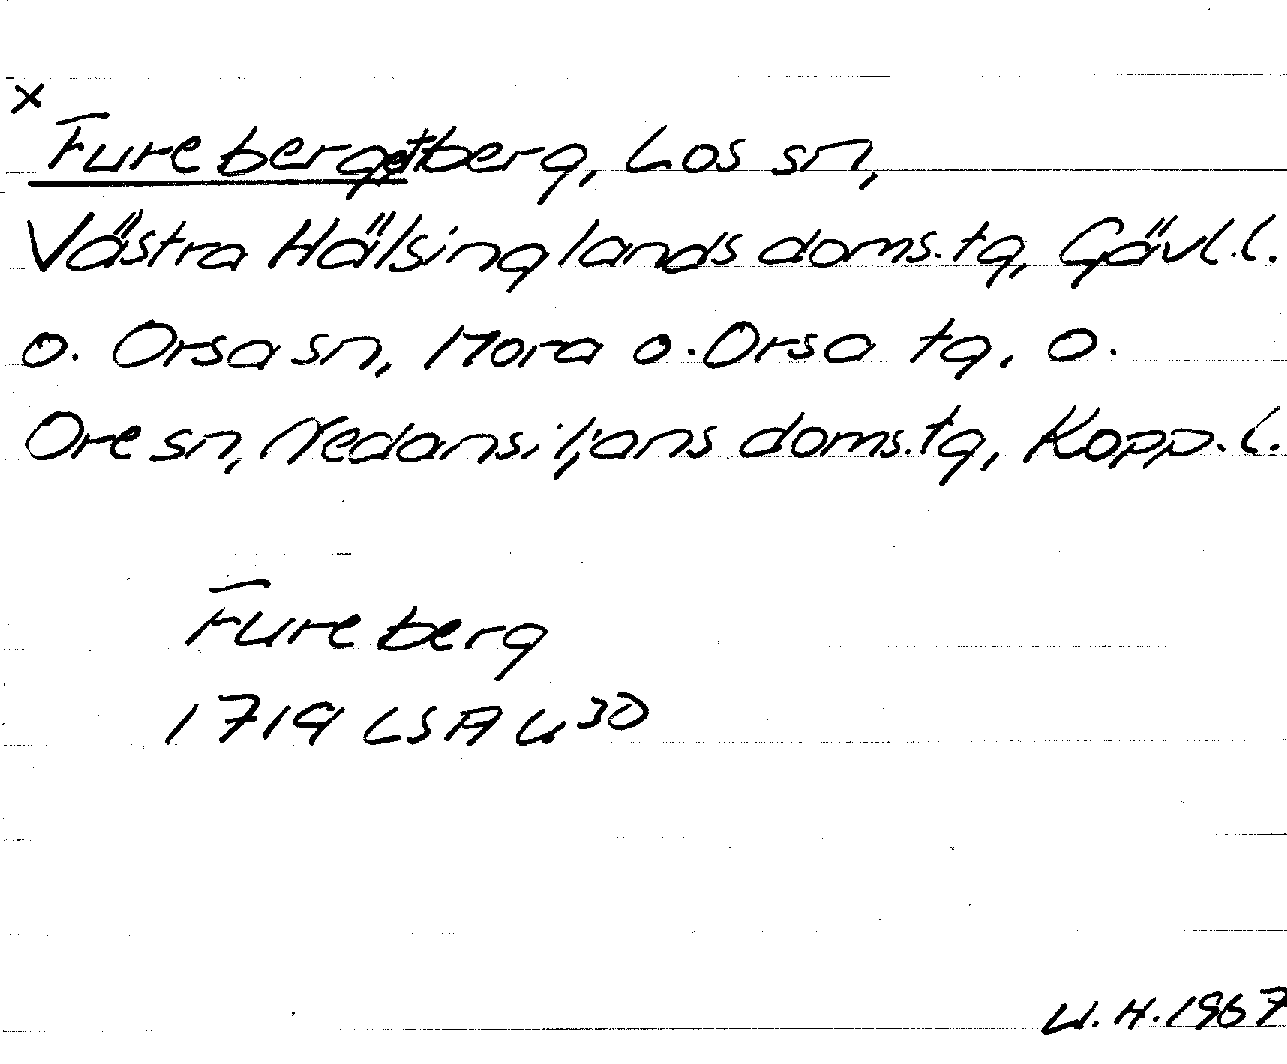 x
Fureberget berg, Los sn,
Västra Hälsinglands doms.tg, Gävl.l.
o. Orsa sn, Mora o. Orsa tg. o.
Ore sn, Nedansiljans doms.tg, Kopp.l.
Fureberg
1719 LSA U30
U.H. 1967